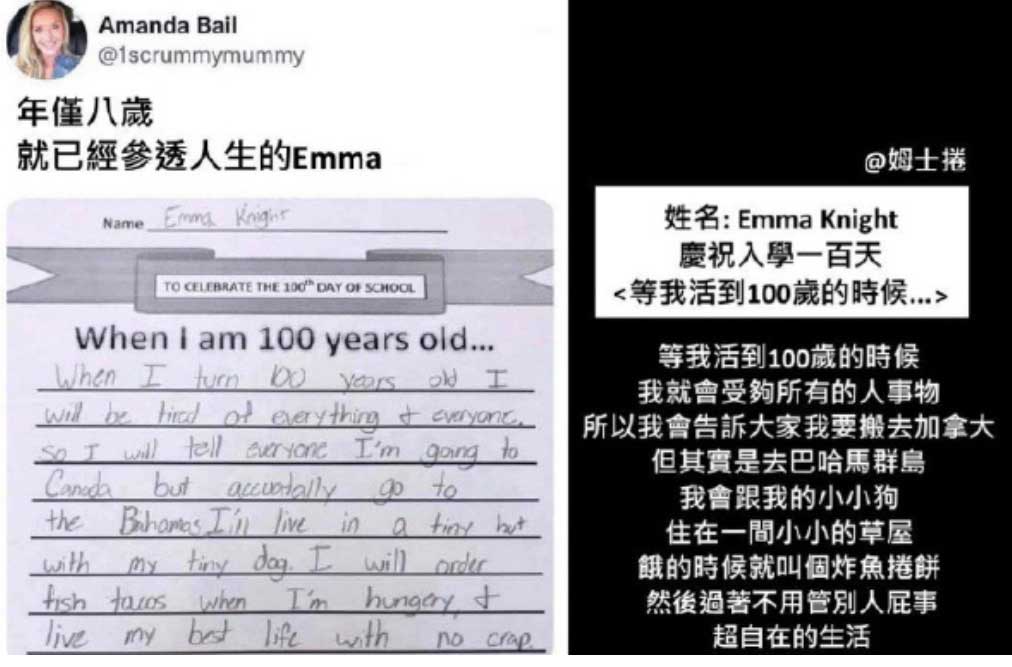 Amanda Bail
@1scrummymummy
年僅八歲
就已經參透人生的Emma
Name Emma Knight
TO CELEBRATE THE 100th DAY OF SCHOOL
When I am 100 years old...
When I turn 100 years old I
will be tired of everything & everyone.
so I will tell everyone I'm going to
Canada but accuatally go to
the Bahamas I'll live in a tiny hut
with my tiny dog. I will order
fish tacos when I'm hungery &
live my best life with no crap.
@姆士捲
姓名: Emma Knight
慶祝入學一百天
<等我活到100歲的時候...>
等我活到100歲的時候
我就會受夠所有的人事物
所以我會告訴大家我要搬去加拿大
但其實是去巴哈馬群島
我會跟我的小小狗
住在一間小小的草屋
餓的時候就叫個炸魚捲餅
然後過著不用管別人屁事
超自在的生活